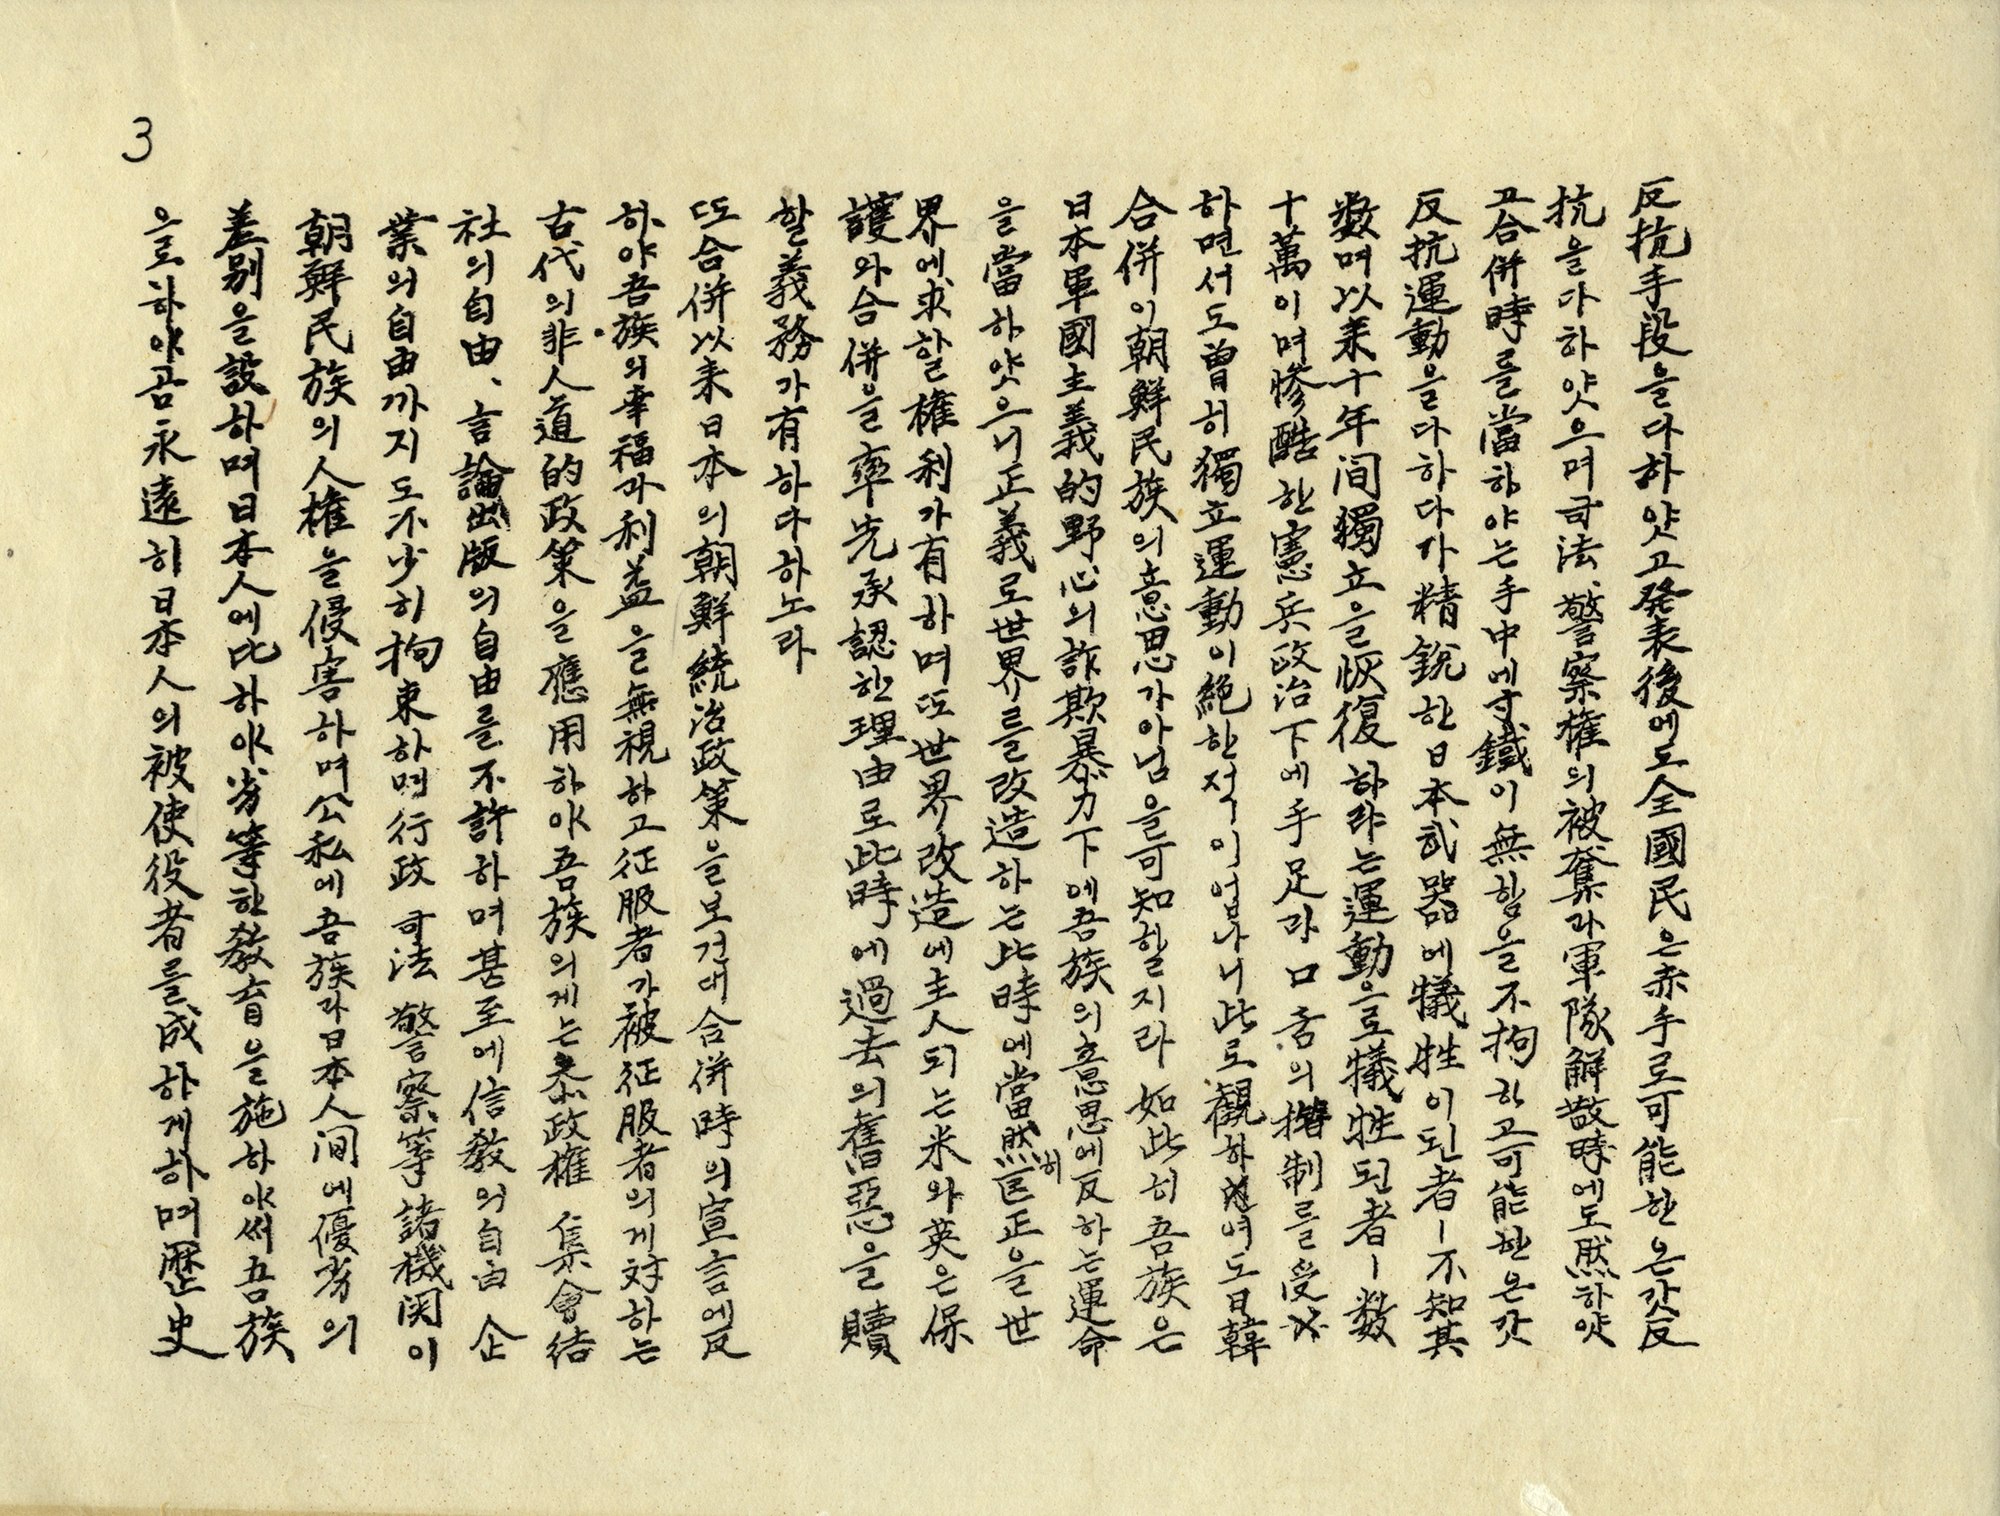 3
反抗手段을다하얏고發表後에도全國民은赤手로可能한온갓反
抗을다하얏으며司法、警察權의被奪과軍隊解散時에도然하얏
고合併時를當하야는手中에寸鐵이無힘을不拘하고可能한온갓
反抗運動을다하다가精銳한日本武器에犧牲이된者ㅣ不知其
数며以来十年間獨立을恢復하랴는運動으로犧牲된者ㅣ数
十萬이며慘酷한憲兵政治下에手足과口舌의箝制를受
하면서도曽히獨立運動이絕한적이업나니此로觀하여도日韓
合併이朝鮮民族의意思가아님을可知할지라如此히吾族은
日本軍國主義的野心의詐欺暴力下에吾族의意思에反하는運命
을當하얏으니正義로世界를改造하는此時에當然히匡正을世
界에求할權利가有하며또世界改造에主人되는米와英은保
護와合併을率先承認한理由로此時에過去의舊惡을贖
할義務가有하다하노라
또合併以来日本의朝鮮統治政策을보건대合併時의宣言에反
하야吾族의幸福과利益을無視하고征服者가被征服者의게対하는
古代의非人道的政策을應用하야吾族의게는參政權 集會結
社의自由、言論出版의自由를不許하며甚至에信教의自由 企
業의自由까지도不少히拘束하며行政 司法 警察等諸機関이
朝鮮民族의人權을侵害하며公私에吾族과日本人間에優劣의
差別을設하며日本人에比하야劣等한教育을施하야써吾族
으로하야곰永遠히日本人의被使役者를成하게하며歷史